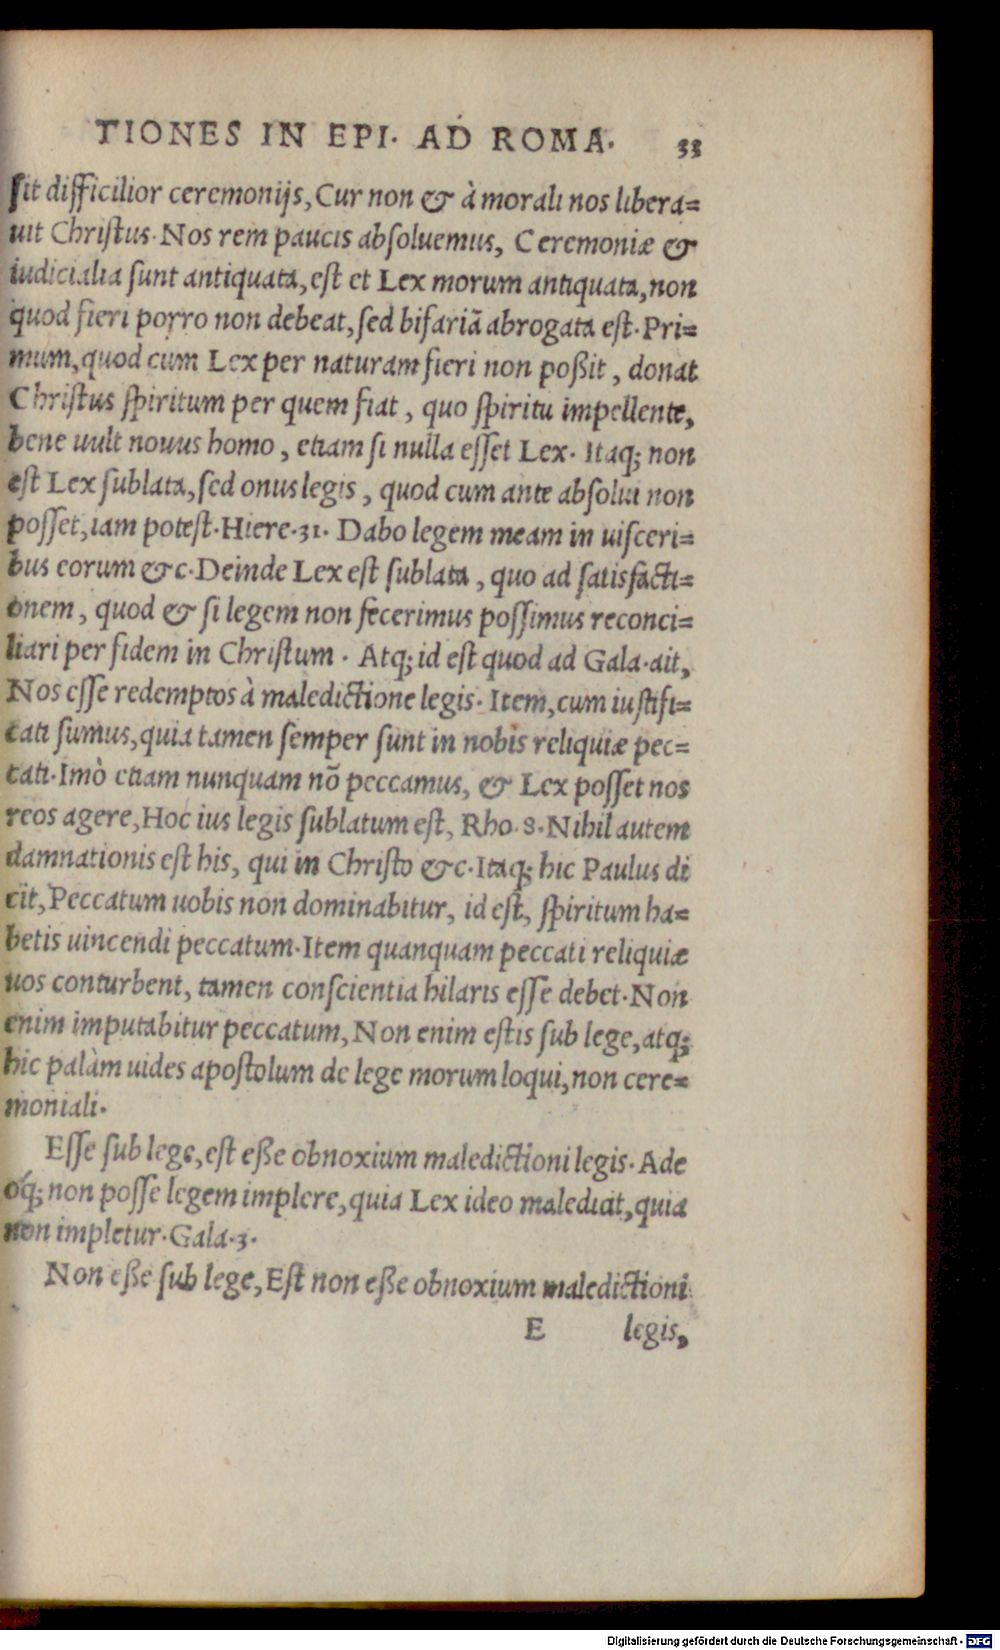 TIONES IN EPI. AD ROMA. 33
sit difficilior ceremonijs, Cur non & à morali nos libera=
uit Christus. Nos rem paucis absoluemus, Ceremoniæ &
iudicialia sunt antiquata, est et Lex morum antiquata, non
quod fieri porro non debeat, sed bifariā abrogata est. Pri=
mum, quod cum Lex per naturam fieri non poßit, donat
Christus spiritum per quem fiat, quo spiritu impellente,
bene uult nouus homo, etiam si nulla esset Lex. Itaq; non
est Lex sublata, sed onus legis, quod cum ante absolui non
posset, iam potest. Hiere. 31. Dabo legem meam in uisceri=
bus eorum &c. Deinde Lex est sublata, quo ad satisfacti=
onem, quod & si legem non fecerimus possimus reconci=
liari per fidem in Christum. Atq; id est quod ad Gala. ait,
Nos esse redemptos à maledictione legis. Item, cum iustifi=
cati sumus, quia tamen semper sunt in nobis reliquiæ pec=
cati. Imò etiam nunquam nō peccamus, & Lex posset nos
reos agere, Hoc ius legis sublatum est, Rho. 8. Nihil autem
damnationis est his, qui in Christo &c. Itaq; hic Paulus di
cit, Peccatum uobis non dominabitur, id est, spiritum ha=
betis uincendi peccatum. Item quanquam peccati reliquiæ
uos conturbent, tamen conscientia hilaris esse debet. Non
enim imputabitur peccatum, Non enim estis sub lege, atq;
hic palàm uides apostolum de lege morum loqui, non cere=
moniali.
Esse sub lege, est eße obnoxium maledictioni legis. Ade
óq; non posse legem implere, quia Lex ideo maledicit, quia
non impletur. Gala. 3.
Non eße sub lege, Est non eße obnoxium maledictioni
E legis,
Digitalisierung gefördert durch die Deutsche Forschungsgemeinschaft - DFG